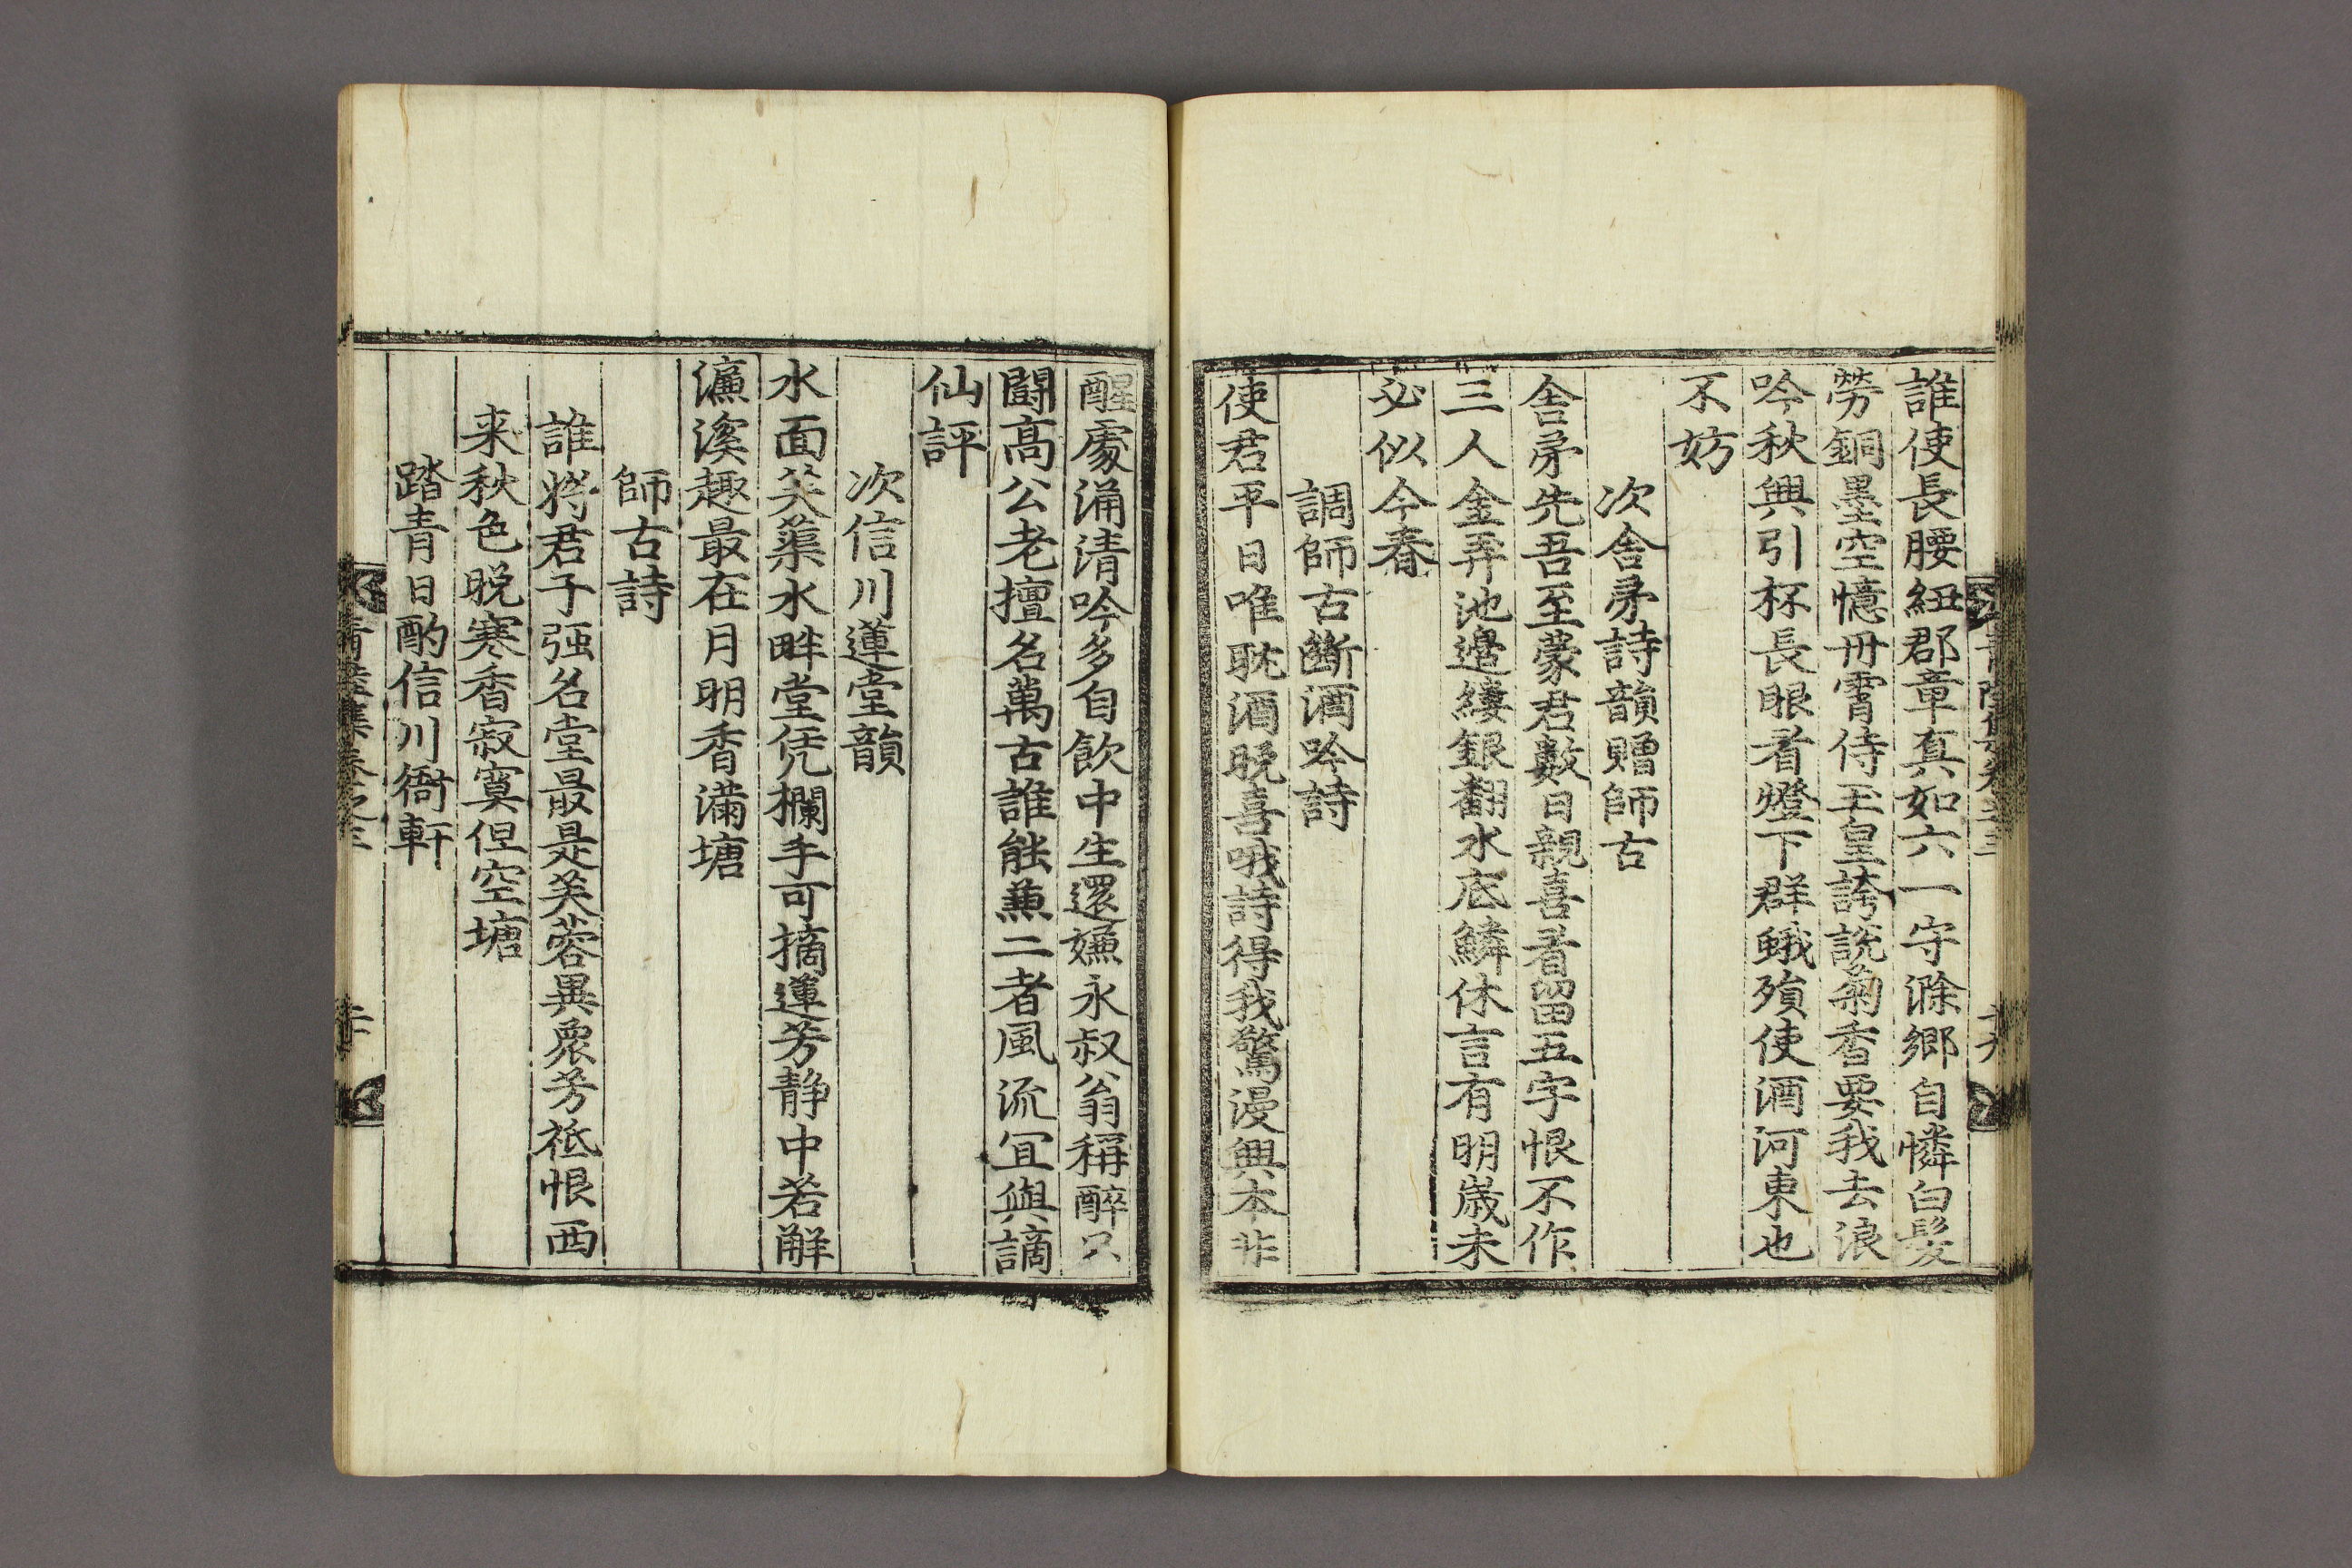 誰使長腰紐郡章真如六一守滁鄉自憐白髮
勞銅墨空憶丹霄侍玉皇誇說菊香要我去浪
吟秋興引杯長眼看燈下群蛾殞使酒河東也
不妨
次舍弟詩韻贈師古
舍弟先吾至蒙君數日親喜看留五字恨不作
三人金弄池邊縷銀翻水底鱗休言有明歲未
必似今春
調師古斷酒吟詩
使君平日唯耽酒晚喜哦詩得我驚漫興本非
醒處涌清吟多自飲中生還嫌永叔翁稱醉只
鬪高公老擅名萬古誰能兼二者風流冝與謫
仙評
次信川蓮堂韻
水面芙蕖水畔堂凭欄手可摘蓮芳静中若解
濂溪趣最在月明香滿塘
師古詩
誰將君子强名堂最是芙蓉異衆芳祗恨西
来秋色晚寒香寂寞但空塘
踏青日酌信川衙軒